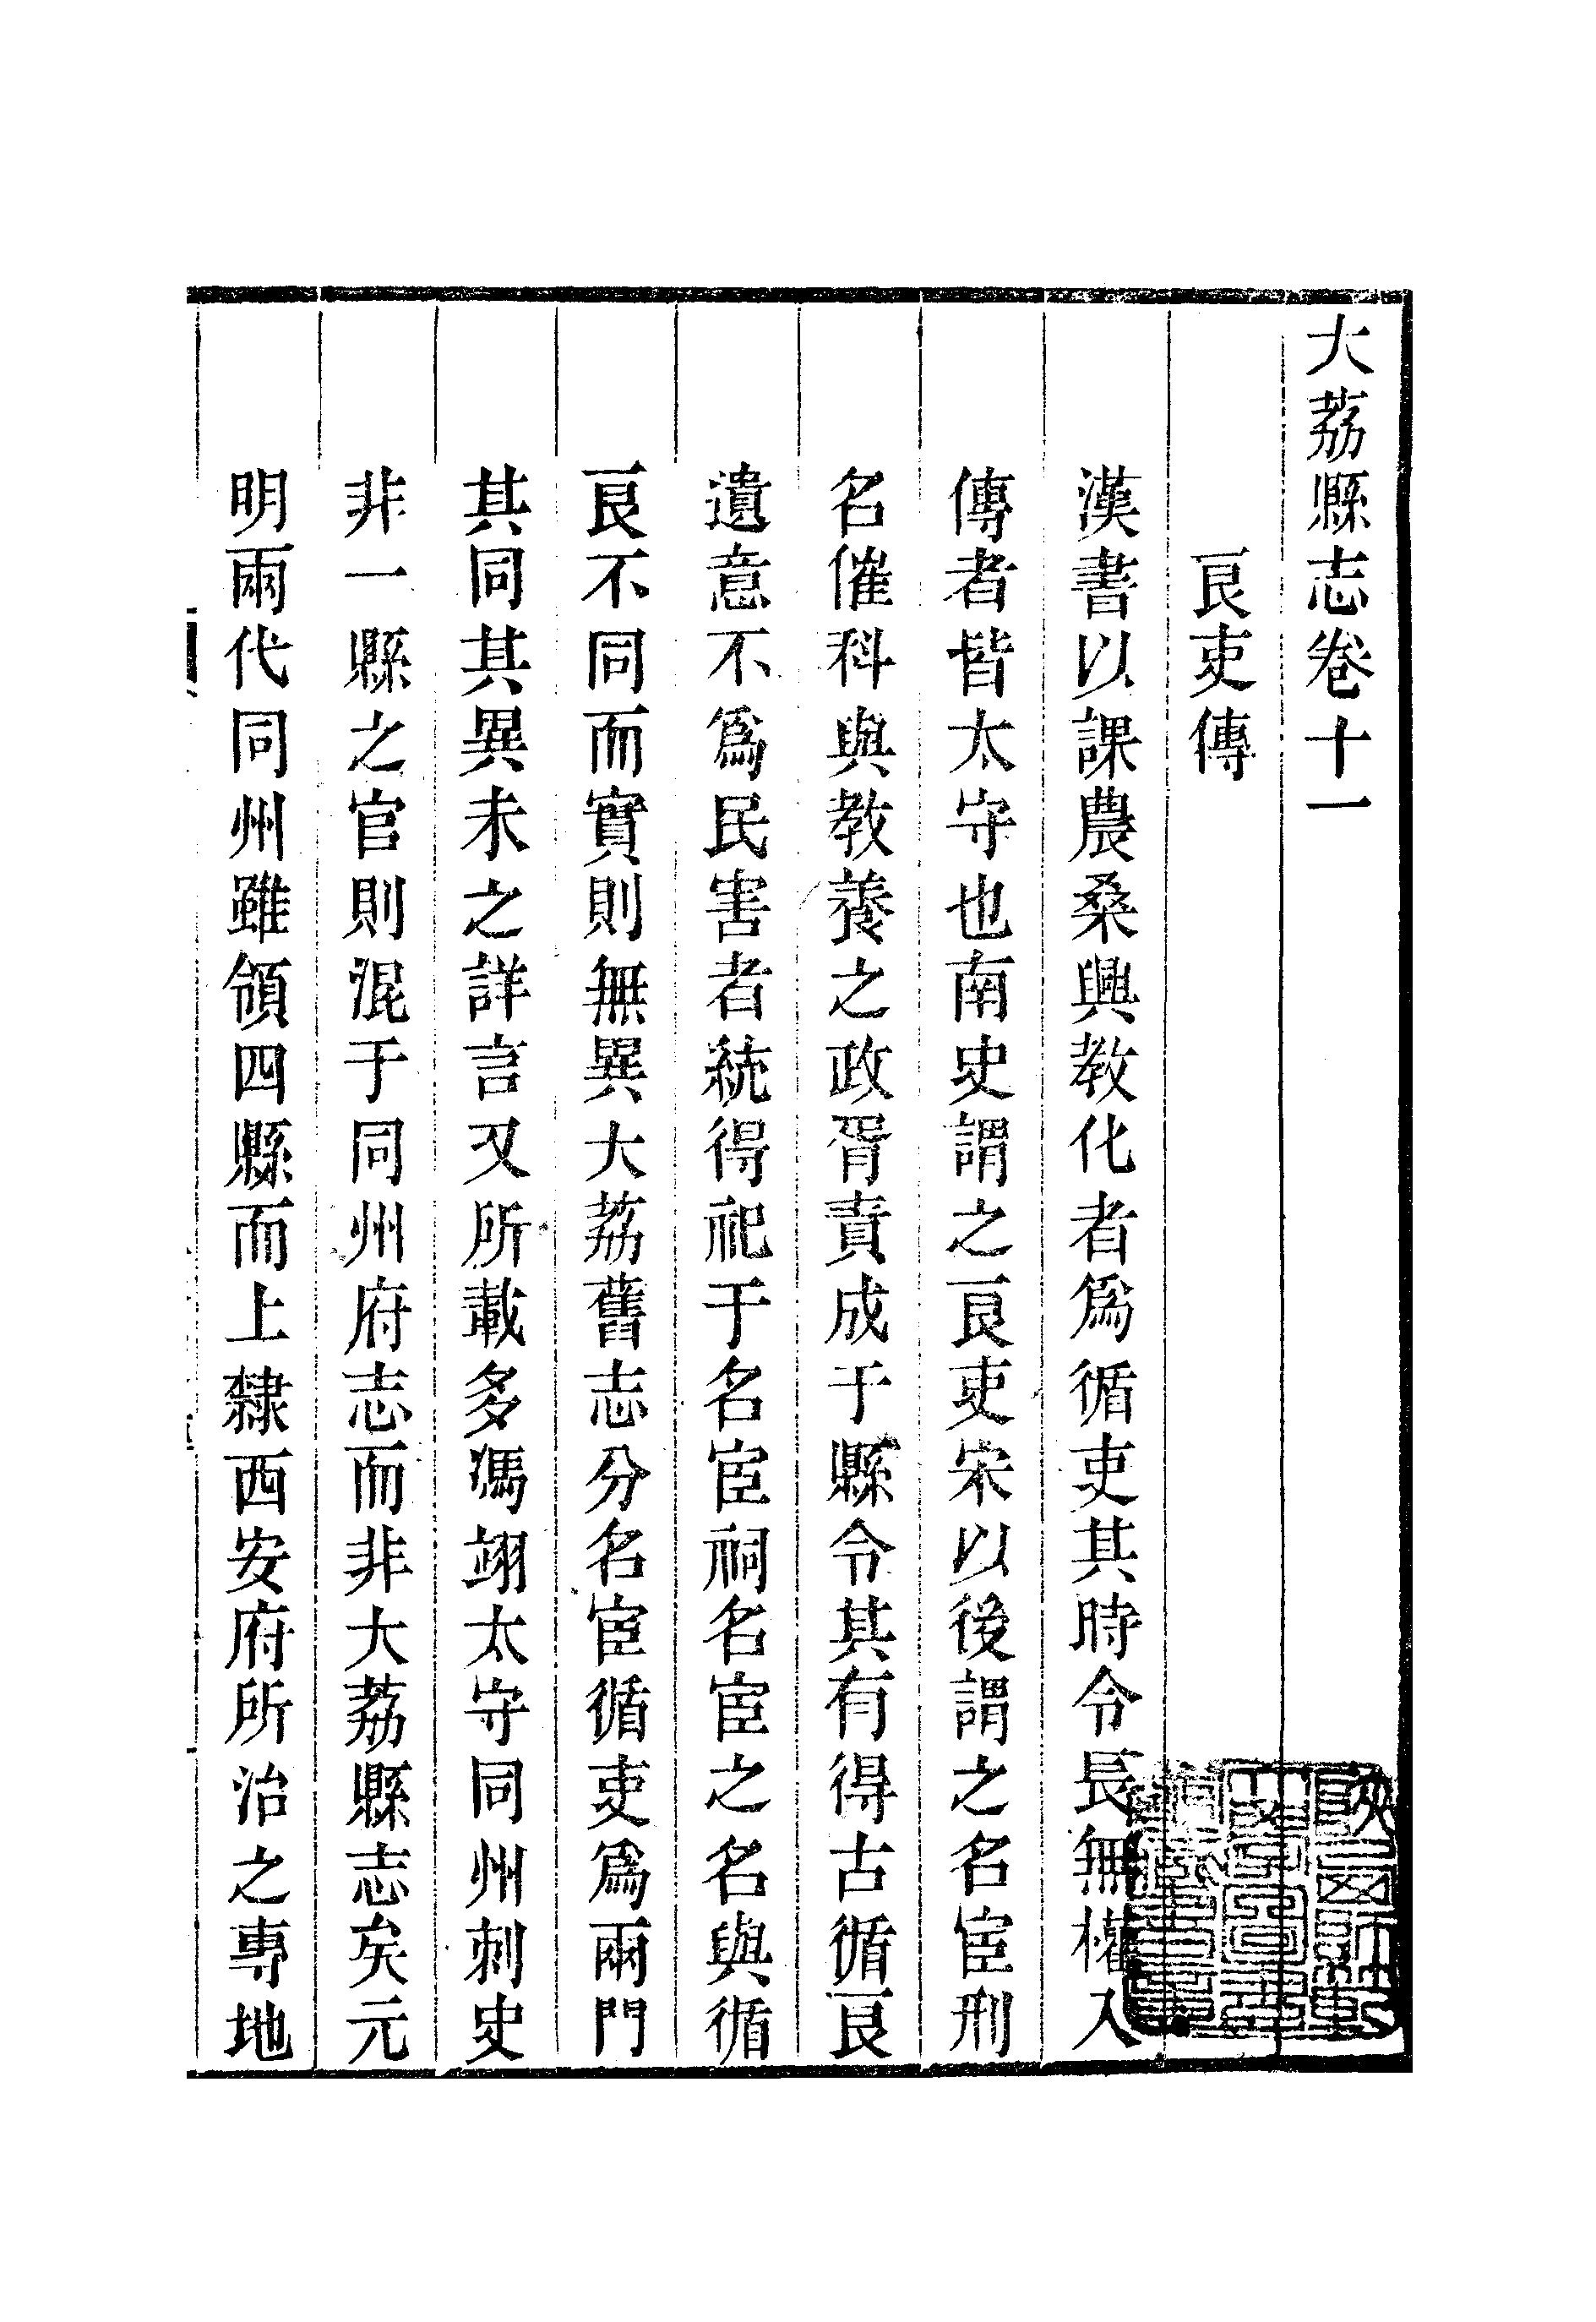 大荔縣志卷十一
良吏傳
漢書以課農桑興教化者爲循吏其時令長無權入
傳者皆太守也南史謂之良吏宋以後謂之名宦刑
名催科與教養之政胥責成于縣令其有得古循良
遺意不爲民害者統得祀于名宦祠名宦之名與循
良不同而實則無異大荔舊志分名宦循吏爲兩門
其同其異未之詳言又所載多馮翊太守同州刺史
非一縣之官則混于同州府志而非大荔縣志矣元
明兩代同州雖領四縣而上隸西安府所治之專地